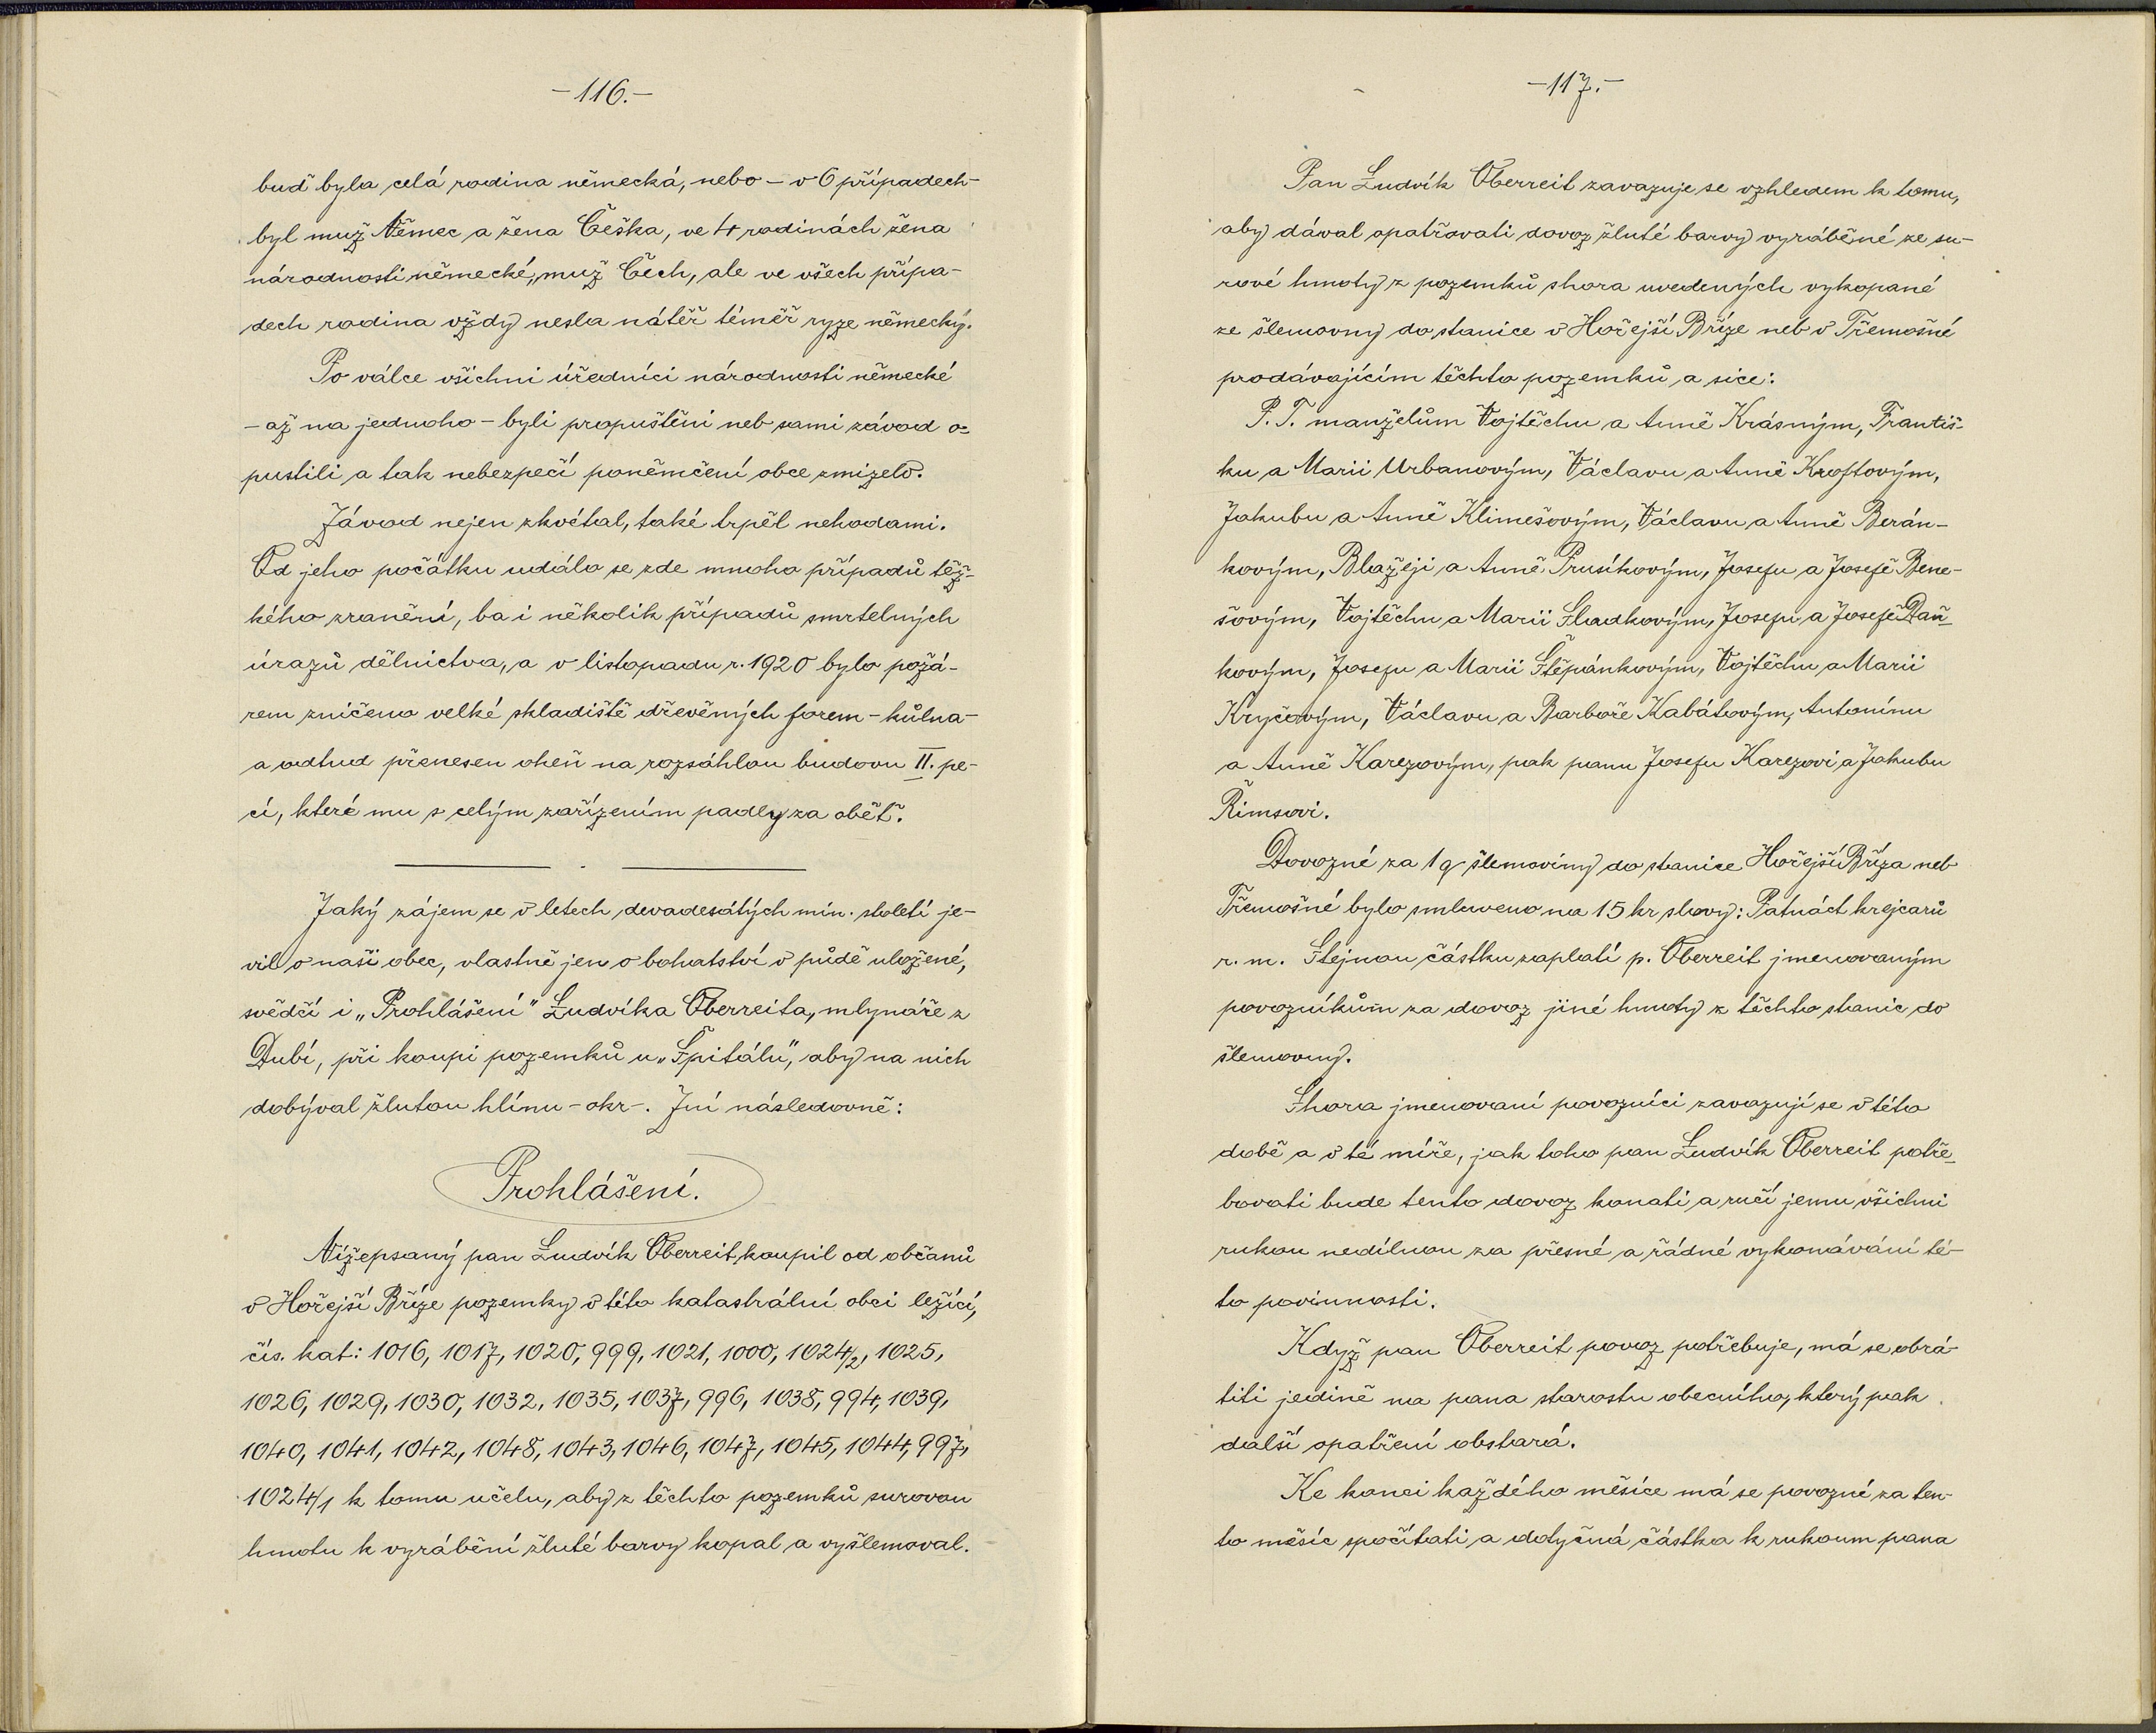 -116.-
buď byla celá rodina německá, nebo - v 6 případech -
byl muž Němec a žena Češka, ve 4 rodinách žena
národnosti německé, muž Čech, ale ve všech přípa-
dech rodina vždy nesla nátěř téměř ryze německý.
Po válce všichni úředníci národnosti německé
- až na jednoho - byli propuštěni neb sami závod o-
pustili a tak nebezpečí poněmčení obce zmizelo.
Závod nejen zkvétal, také trpěl nehodami.
Od jeho počátku událo se zde mnoho případů těž-
kého zranění, ba i několik případů smrtelných
úrazů dělnictva, a v listopadu r. 1920 bylo požá-
rem zničeno velké skladiště dřevěných forem - kůlna -
a odtud přenesen oheň na rozsáhlou budovu II. pe-
cí, které mu s celým zařízením padly za oběť.
Jaký zájem se v letech devadesátých min. století je-
vil o naši obec, vlastně jen o bohatství v půdě uložené,
svědčí i „Prohlášení" Ludvíka Oberreita, mlynáře z
Dubí, při koupi pozemků u „Špitálu", aby na nich
dobýval žlutou hlínu - okr -. Zní následovně:
Prohlášení.
Nížepsaný pan Ludvík Oberreit koupil od občanů
v Hořejší Bříze pozemky v této katastrální obci ležící,
čís. kat: 1016, 1017, 1020, 999, 1021, 1000, 1024/2, 1025,
1026, 1029, 1030, 1032, 1035, 1037, 996, 1038, 994, 1039,
1040, 1041, 1042, 1048, 1043, 1046, 1047, 1045, 1044, 997,
1024/1 k tomu učelu, aby z těchto pozemků surovou
hmotu k vyrábění žluté barvy kopal a vyšlemoval.
-117.-
Pan Ludvík Oberreit zavazuje se vzhledem k tomu,
aby dával opatřovati dovoz žluté barvy vyráběné ze su-
rové hmoty z pozemků shora uvedených vykopané
ze šlemovny do stanice v Hořejší Bříze neb v Třemošné
prodávajícím těchto pozemků a sice:
P. T. manželům Vojtěchu a Anně Krásným, Františ-
ku a Marii Urbanovým, Václavu a Anně Kroftovým,
Jakubu a Anně Klimešovým, Václavu a Anně Berán-
kovým, Blažeji a Anně Prusíkovým, Josefu a Josefě Bene-
šovým, Vojtěchu a Marii Sladkovým, Josefu a Josefě Daň-
kovým, Josefu a Marii Štěpánkovým, Vojtěchu a Marii
Kryčovým, Václavu a Barboře Kabátovým, Antonínu
a Anně Karezovým, pak panu Josefu Karezovi a Jakubu
Řimsovi.
Dovozné za 1 q šlemoviny do stanice Hořejší Bříza neb
Třemošné bylo smluveno na 15 kr slovy: Patnáct krejcarů
r. m. Stejnou částku zaplatí p. Oberreit jmenovaným
povozníkům za dovoz jiné hmoty z těchto stanic do
šlemovny.
Shora jmenovaní povozníci zavazují se v této
době a v té míře, jak toho pan Ludvík Oberreit potře-
bovati bude tento dovoz konati a ručí jemu všichni
rukou nedílnou za přesné a řádné vykonávání té-
to povinnosti.
Když pan Oberreit povoz potřebuje, má se obrá-
titi jedině na pana starostu obecního, který pak
další opatření obstará.
Ke konci každého měsíce má se povozné za ten-
to měsíc spočítati a dotyčná částka k rukoum pana